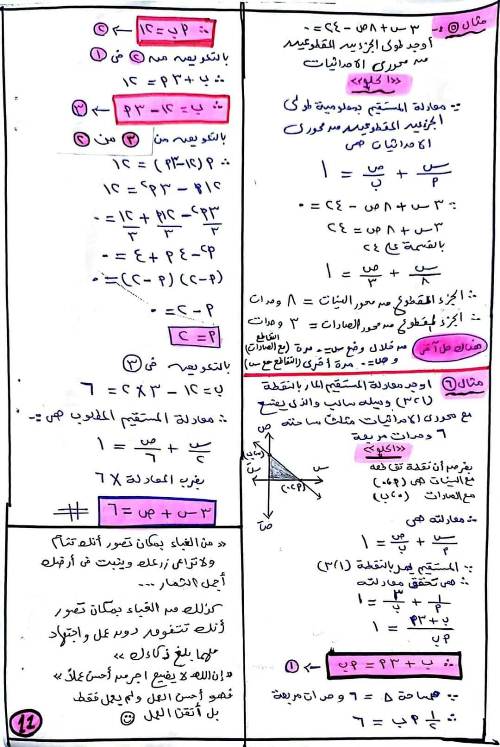 مثال ٥ :- ٣س + ٨ص - ٢٤ = ٠
أوجد طولى الجزءين المقطوعين
من محورى الاحداثيات
«الحلول»
∵ معادلة المستقيم بمعلومية طولى
الجزءين المقطوعين من محورى
الاحداثيات هى
س/٢ + ص/ب = ١
∵ ٣س + ٨ص - ٢٤ = ٠
٣س + ٨ص = ٢٤
بالقسمة على ٢٤
س/٨ + ص/٣ = ١
∴ الجزء المقطوع من محور السينات = ٨ وحدات
∴ الجزء المقطوع من محور الصادات = ٣ وحدات
هناك حل آخر
من خلال وضع س=٠ مرة (التقاطع مع الصادات)
و ص=٠ مرة أخرى (التقاطع مع س)
مثال ٦ أوجد معادلة المستقيم المار بالنقطة
(١،٣) وميله سالب والذى يصنع
مع محورى الاحداثيات مثلث مساحته
٦ وحدات مربعة
«الحلول»
بفرض أن نقطة تقاطعه
مع السينات هى (٢،٠)
مع الصادات (٠،ب)
ص
س
سَ
صَ
(٠،ب)
(٢،٠)
∴ معادلته هى
س/٢ + ص/ب = ١
∵ المستقيم يمر بالنقطة (١،٣)
∴ هى تحقق معادلته
١/٢ + ٣/ب = ١
ب + ٣٢ / ٢ب = ١
∴ ب + ٣٢ = ٢ب ← ١
∵ مساحة ∆ = ٦ وحدات مربعة
∴ ½ ٢ب = ٦
∴ ٢ب = ١٢ ← ٢
بالتعويض من ٢ فى ١
∴ ب + ٣٢ = ١٢
∴ ب = ١٢ - ٣٢ ← ٣
بالتعويض من ٣ من ٢
∴ ٢(١٢ - ٣٢) = ١٢
١٢٢ - ٣٢² = ١٢
٣٢²/٣ - ١٢٢/٣ + ١٢/٣ = ٠
٢² - ٤٢ + ٤ = ٠
(٢ - ٢)(٢ - ٢) = ٠
٢ - ٢ = ٠
٢ = ٢
بالتعويض فى ٣
ب = ١٢ - ٣ × ٢ = ٦
∴ معادلة المستقيم المطلوب هى :-
س/٢ + ص/٦ = ١
بضرب المعادلة × ٦
٣س + ص = ٦
«من الغباء بمكان تصور أنك تنام
ولا تراعى زرعك وينبت فى أرضك
أجمل الثمار ...
كذلك من الغباء بمكان تصور
أنك تتفوق دون عمل واجتهاد
مهما بلغ ذكاءك»
«إن الله لا يضيع أجر من أحسن عملاً»
فهو أحسن العمل ولم يعمل فقط
بل أتقن العمل
١١